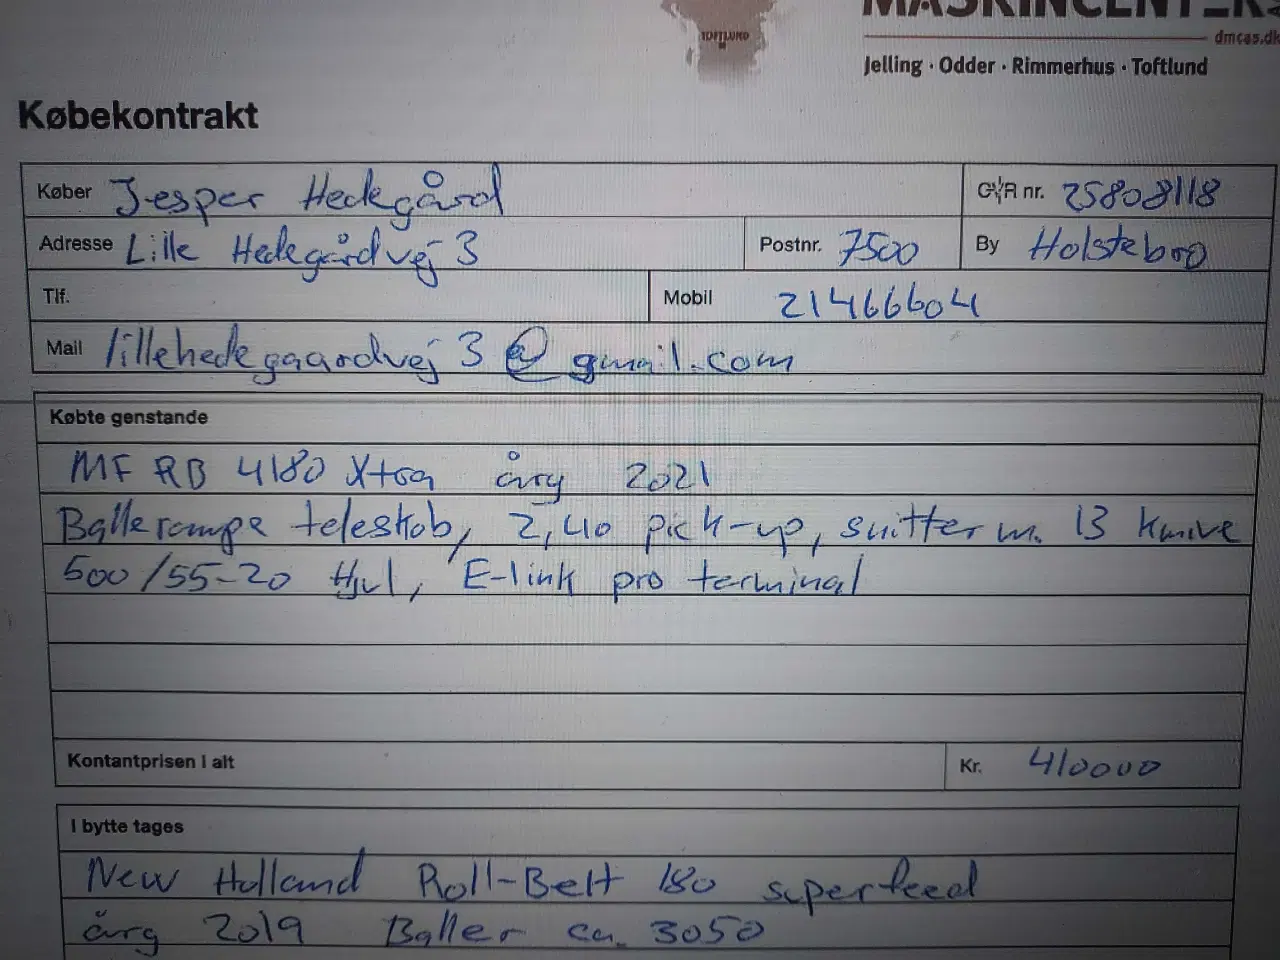 TOFTLUND
MASKINCENTER
dmcas.dk
Jelling · Odder · Rimmerhus · Toftlund
Købekontrakt
Køber Jesper Hedegård CVR nr. 25808118
Adresse Lille Hedegårdvej 3 Postnr. 7500 By Holstebro
Tlf. Mobil 21466604
Mail lillehedegaardvej3@gmail.com
Købte genstande
MF RB 4180 Xtra årg 2021
Ballerampe teleskob, 2,40 pick-up, snitter m. 13 knive
500/55-20 Hjul, E-link pro terminal
Kontantprisen i alt Kr. 410000
I bytte tages
New Holland Roll-Belt 180 superfeed
årg 2019 Baller ca. 3050